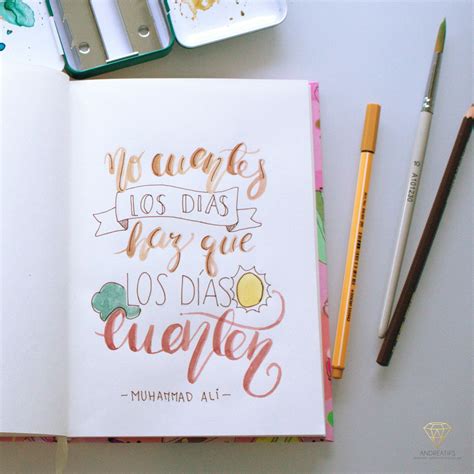 No cuentes
LOS DIAS
haz que
LOS DÍAS
cuenten
-MUHAMMAD ALI-
ANDREATIPS